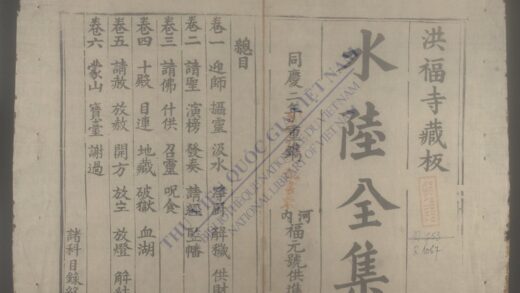 洪福寺藏板
水陸全集
同慶二年重鐫
河內福元號供進
總目
卷一 迎師 攝靈 汲水 解獄 供財
卷二 請聖 演榜 發奏 請經 監幡
卷三 請佛 什供 召靈 呪食
卷四 十殿 目連 地藏 破獄 血湖
卷五 請赦 放赦 開方 放生 放燈 解結
卷六 蒙山 寶臺 謝過
諸科目錄
THƯ VIỆN QUỐC GIA VIỆT NAM
BIBLIOTHÈQUE NATIONALE DU VIETNAM
NATIONAL LIBRARY OF VIETNAM